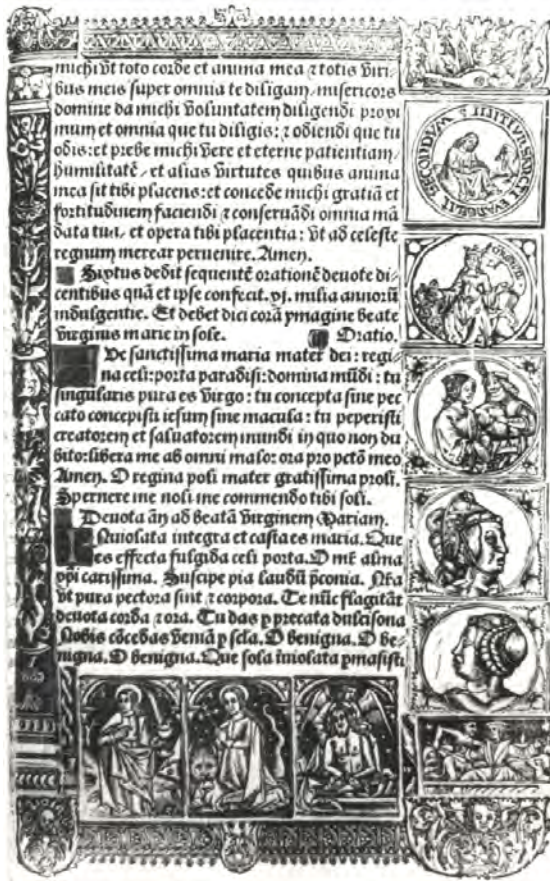 michi vt toto corde et anima mea ⁊ totis viri-
bus meis super omnia te diligam/misericors
domine da michi voluntatem diligendi proxi
mum et omnia que tu diligis: ⁊ odiendi que tu
odis: et prebe michi vere et eterne patientiam/
humilitatē/et alias virtutes quibus anima
mea sit tibi placens: et concede michi gratiā et
fortitudinem faciendi ⁊ conseruādi omnia mā
data tua/et opera tibi placentia: vt ad celeste
regnum merear peruenire. Amen.
Sixtus dedit sequentē orationē deuote di-
centibus quā et ipse confecit. xj. milia annorū
indulgentie. Et debet dici corā ymagine beate
virginis marie in sole. Oratio.
Ue sanctissima maria mater dei: regi-
na celi: porta paradisi: domina mūdi: tu
singularis pura es virgo: tu concepta sine pec
cato concepisti iesum sine macula: tu peperisti
creatorem et saluatorem mundi in quo non du
bito: libera me ab omni malo: ora pro petō meo
Amen. O regina poli mater gratissima proli.
Spernere me noli me commendo tibi soli.
Deuota añ ad beatā virginem Mariam.
Nuiolata integra et casta es maria. Que
es effecta fulgida celi porta. O mr̄ alma
xpi carissima. Suscipe pia laudū p̄conia. Nr̄a
vt pura pectora sint ⁊ corpora. Te nūc flagitāt
deuota corda ⁊ ora. Tu das p precata dulcisona
Nobis cōcedas veniā p scla. O benigna. O be-
nigna. O benigna. Que sola iuiolata pmāsisti
SECONDVM